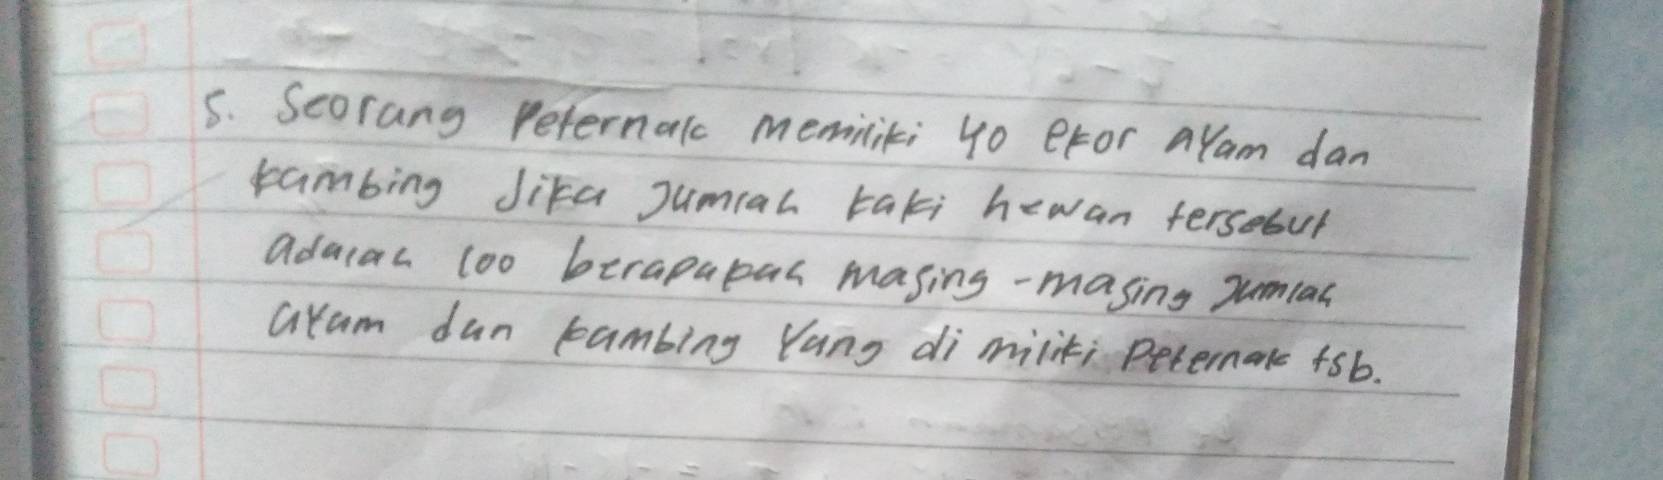 5. Seorang Peternak memiliki 40 ekor Ayam dan
kambing Jika Jumlah kaki hewan tersebut
adalah 100 berapapah masing-masing Jumlah
ayam dan kambing Yang di miliki Peternak tsb.